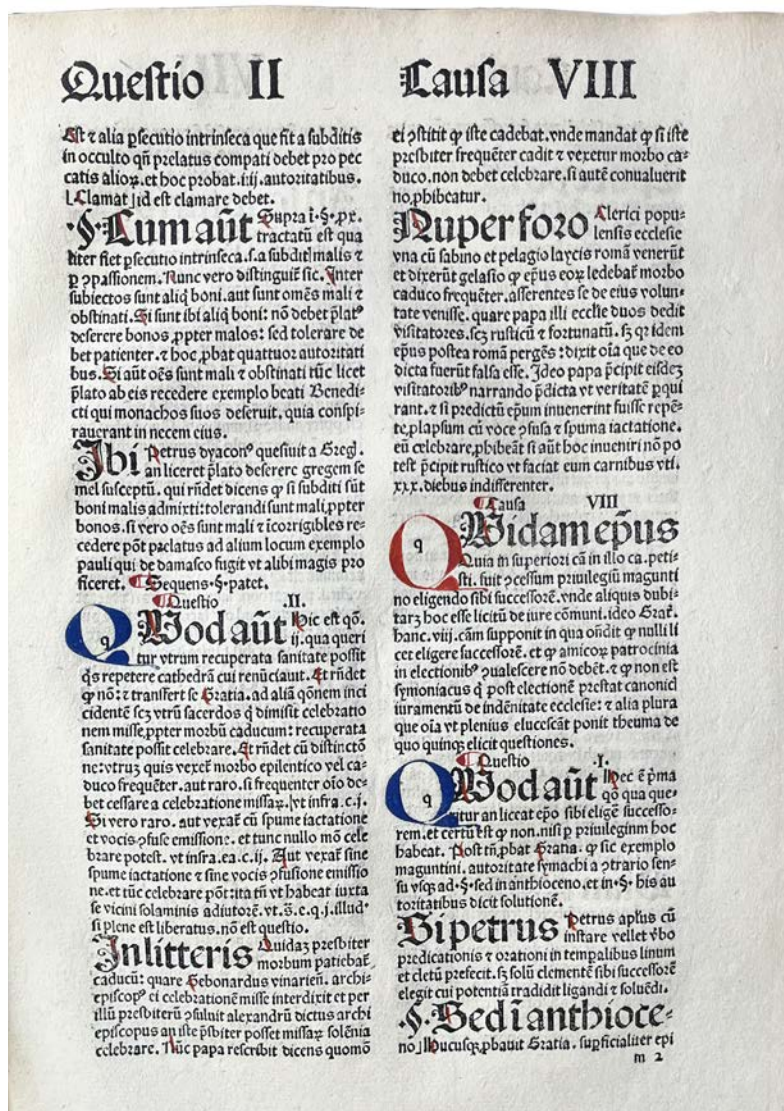 Questio II
Causa VIII
Est ⁊ alia ꝑsecutio intrinseca que fit a subditis
in occulto qñ prelatus compati debet pro pec
catis alioꝝ. et hoc probat .iiij. autoritatibus.
[Clamat] id est clamare debet.
·§·Cum aūt Supra .§. pꝛ.
tractatū est qua
liter fiet ꝑsecutio intrinseca. s. a subditis malis ⁊
ꝑ ꝯpassionem. Nunc vero distinguit͛ sic. Inter
subiectos sunt aliq̇ boni. aut sunt omēs mali ⁊
obstinati. Si sunt ibi aliq̇ boni: nō debet p̄lat⁹
deserere bonos ꝓpter malos: sed tolerare de
bet patienter. ⁊ hoc ꝓbat quattuor autoritati
bus. Si aūt oēs sunt mali ⁊ obstinati tūc licet
p̄lato ab eis recedere exemplo beati Benedi-
cti qui monachos suos deseruit, quia conspi-
rauerant in necem eius.
Ibi Petrus dyacon⁹ quesiuit a Greg.
an liceret p̄lato deserere gregem se
mel susceptū. qui rñdet dicens ꝙ si subditi sūt
boni malis admixti: tolerandi sunt mali ꝓpter
bonos. si vero oēs sunt mali ⁊ icorrigibles re-
cedere pōt prelatus ad alium locum exemplo
pauli qui de damasco fugit vt alibi magis pro
ficeret. ¶ Sequens .§. patet.
¶ Questio .II.
Quod aūt Hic est qō.
ij. qua queri
tur vtrum recuperata sanitate possit
q̇s repetere cathedrā cui renūciauit. Et rñdet
ꝙ nō: ⁊ transfert se Gratia. ad aliā qōnem inci
cidentē scꝫ vtrū sacerdos q̇ dimisit celebratio
nem misse ꝓpter morbū caducum: recuperata
sanitate possit celebrare. Et rñdet cū distinctō
ne: vtruꝫ quis vexet͛ morbo epilentico vel ca-
duco frequēter. aut raro. si frequenter oīo de-
bet cessare a celebratione missaꝝ. vt infra. c. j.
Si vero raro. aut vexat͛ cū spume iactatione
et vocis ꝯfuse emissione. et tunc nullo mō cele
brare potest. vt infra. ea. c. ij. Aut vexat͛ sine
spume iactatione ⁊ sine vocis ꝯfusione emissio
ne. et tūc celebrare pōt: ita tñ vt habeat iuxta
se vicini solaminis adiutorē. vt. s̄. e. q. j. illud.
si plene est liberatus. nō est questio.
In litteris Quidaꝫ presbiter
morbum patiebat͛
caducū: quare Gebonardus vinarieñ. archi-
episcop⁹ ei celebrationē misse interdixit et per
illū presbiterū ꝯsuluit alexandrū dictus archi
episcopus an iste p̄sbiter posset missaꝝ solēnia
celebrare. Nūc papa rescribit dicens quomō
ei ꝯstitit ꝙ iste cadebat. vnde mandat ꝙ si iste
presbiter frequēter cadit ⁊ vexetur morbo ca-
duco. non debet celebrare. si autē conualuerit
no ꝓhibeatur.
Nuper foro Clerici popu-
lensis ecclesie
vna cū sabino et pelagio laycis romā venerūt
et dixerūt gelasio ꝙ ep̄us eoꝝ ledebat͛ morbo
caduco frequēter. asserentes se de eius volun-
tate venisse. quare papa illi ecclīe duos dedit
visitatores. scꝫ rusticū ⁊ fortunatū. sꝫ qꝛ idem
ep̄us postea romā pergēs: dixit oīa que de eo
dicta fuerūt falsa esse. Ideo papa p̄cipit eisdeꝫ
visitatorib⁹ narrando p̄dicta vt veritatē ꝑqui
rant. ⁊ si predictū ep̄um inuenerint fuisse repē-
te, plapsum cū voce ꝯfusa ⁊ spuma iactatione.
eū celebrare ꝓhibeāt si aūt hoc inueniri nō po
test p̄cipit rustico vt faciat eum carnibus vti.
xxx. diebus indifferenter.
¶ Causa VIII
Quidam ep̄us
Quia in superiori cā in illo ca. peti-
sti. fuit ꝯcessum priuilegiū magunti
no eligendo sibi successorē. vnde aliquis dubi-
taret hoc esse licitū de iure cōmuni. ideo Grat͛.
hanc. viij. cām supponit in qua oñdit ꝙ nulli li
cet eligere successorē. et ꝙ amicoꝝ patrocinia
in electionib⁹ ꝯualescere nō debēt. ⁊ ꝙ non est
symoniacus q̇ post electionē prestat canonicis
iuramentū de indēnitate ecclesie: ⁊ alia plura
que oīa vt plenius elucescāt ponit theuma de
quo quinqꝫ elicit questiones.
¶ Questio .I.
Quod aūt Hec ē p̄ma
qō qua que-
ritur an liceat ep̄o sibi elige͛ successo-
rem. et certū est ꝙ non. nisi ꝑ priuileginm hoc
habeat. Post tñ ꝓbat Grana. ꝙ sic exemplo
maguntini. autoritate symachi a ꝯtrario sen-
su vsqꝫ ad .§. sed in anthioceno. et in .§. his au
toritatibus dicit solutionē.
Si petrus Petrus apl̄us cū
instare vellet v̄bo
predicationis ⁊ orationi in tempalibus linum
et cletū prefecit. sꝫ solū clementē sibi successorē
elegit cui potentiā tradidit ligandi ⁊ soluēdi.
·§·Sed ī anthioce-
no] Hucusqꝫ ꝓbauit Gratia. suꝑficialiter epi
m 2